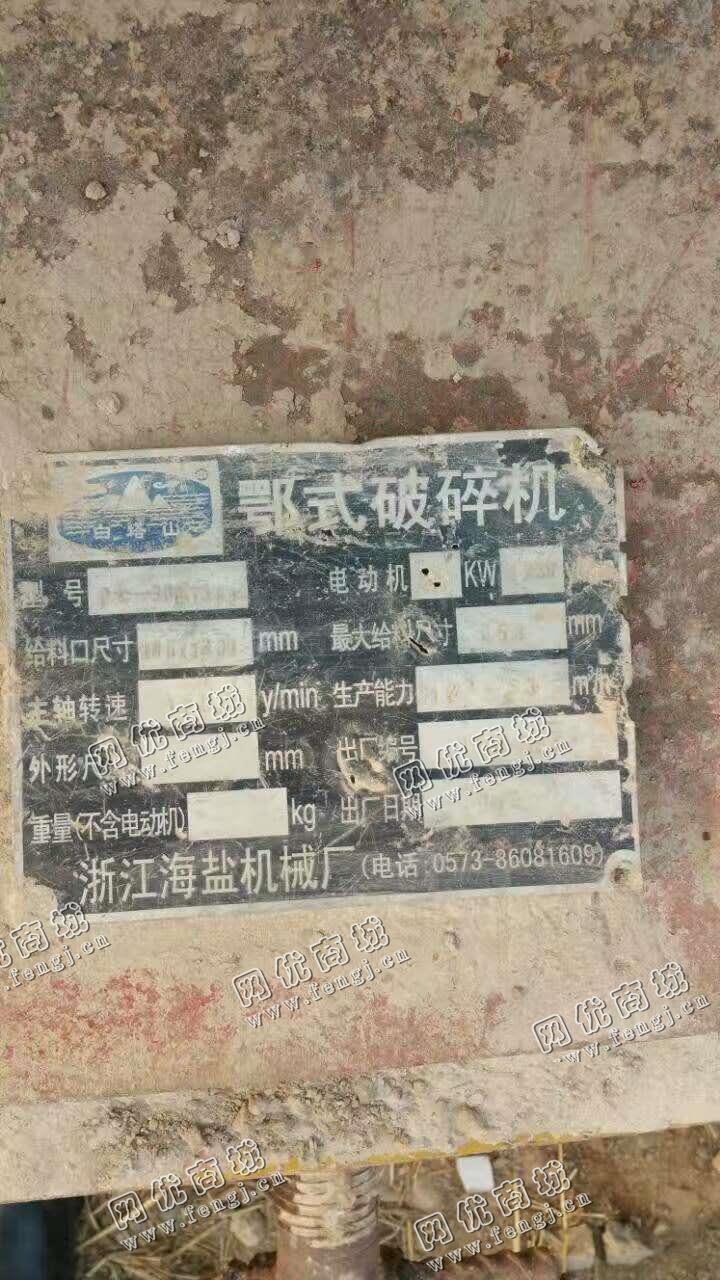 白塔山
鄂式破碎机
型号 电动机 KW
给料口尺寸 mm 最大给料尺寸 mm
主轴转速 y/min 生产能力 m³/h
外形尺 mm 出厂编号
重量(不含电动机) kg 出厂日期
浙江海盐机械厂(电话:0573-86081609)
网优商城
www.fengj.cn
网优商城
www.fengj.cn
网优商城
www.fengj.cn
网优商城
www.fengj.cn
网优商城
www.fengj.cn
网优商城
www.fengj.cn
网优商城
www.fengj.cn